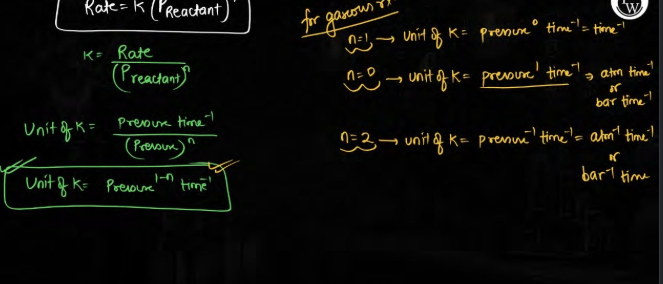 Rate = K (P Reactant)
K = Rate
(P reactant)^n
Unit of K = Pressure time^-1
(Pressure)^n
Unit of K = Pressure^1-n time^-1
for gaseous
n=1 → unit of K = pressure^0 time^-1 = time^-1
n=0 → unit of K = pressure^1 time^-1 ⇒ atm time^-1
or
bar time^-1
n=2 → unit of K = pressure^-1 time^-1 = atm^-1 time^-1
or
bar^-1 time